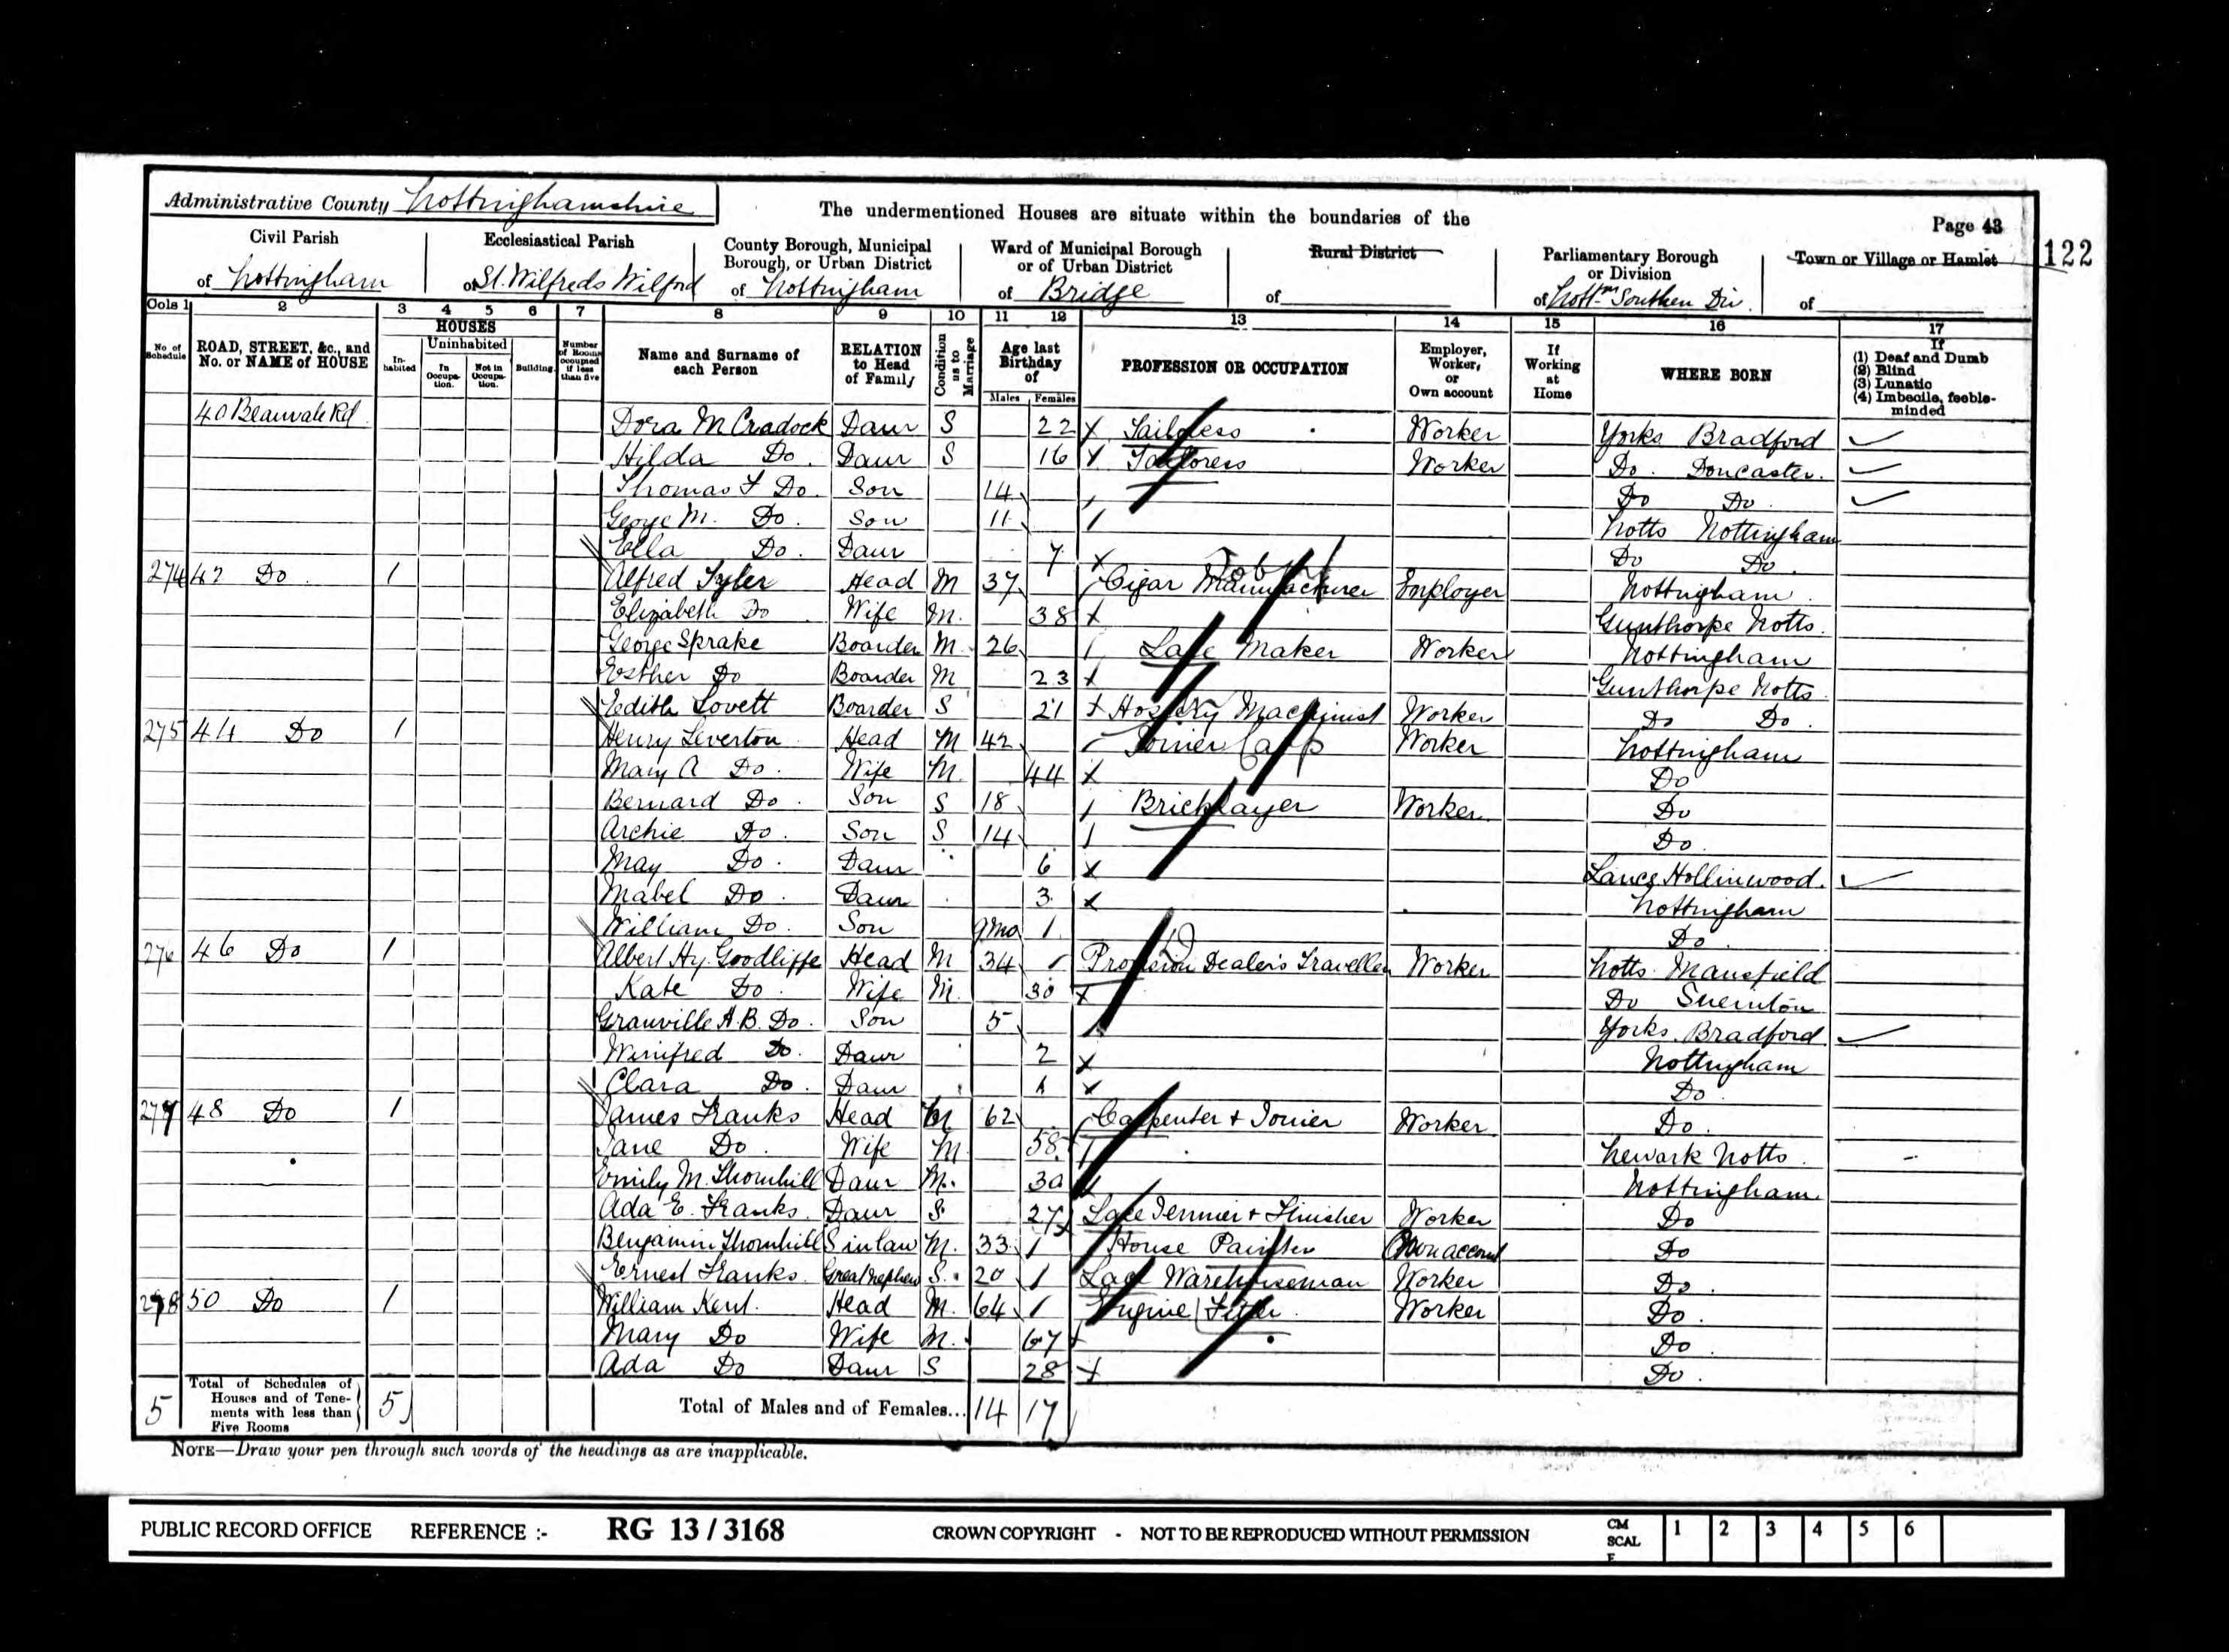 Administrative County Nottinghamshire
The undermentioned Houses are situate within the boundaries of the
Page 43
122
Civil Parish of Nottingham
Ecclesiastical Parish of St. Wilfreds Wilford
County Borough, Municipal Borough, or Urban District of Nottingham
Ward of Municipal Borough or of Urban District of Bridge
Rural District of
Parliamentary Borough or Division of Nottm Southern Div.
Town or Village or Hamlet of
Cols 1 2 3 4 5 6 7 8 9 10 11 12 13 14 15 16 17
No. of Schedule
ROAD, STREET, &c., and No. or NAME of HOUSE
HOUSES
Inhabited
Uninhabited
In Occupation.
Not in Occupation.
Building.
Number of Rooms occupied if less than five
Name and Surname of each Person
RELATION to Head of Family
Condition as to Marriage
Age last Birthday of
Males Females
PROFESSION OR OCCUPATION
Employer, Worker, or Own account
If Working at Home
WHERE BORN
If
(1) Deaf and Dumb
(2) Blind
(3) Lunatic
(4) Imbecile, feeble-minded
40 Beauvale Rd Dora M Cradock Daur S 22 X Tailoress Worker Yorks Bradford
Hilda Do. Daur S 16 X Tailoress Worker Do. Doncaster.
Thomas F Do. Son 14 Do Do.
George M. Do. Son 11 Notts Nottingham
Ella Do. Daur 7 X Do Do.
274 42 Do 1 Alfred Tyler Head M 37 Cigar Manufacturer Employer Nottingham.
Elizabeth Do Wife M. 38 X Gunthorpe Notts.
George Sprake Boarder M. 26 Lace Maker Worker Nottingham
Esther Do Boarder M 23 X Gunthorpe Notts
Edith Lovett Boarder S 21 X Hosiery Machinist Worker Do Do.
275 44 Do 1 Henry Leverton Head M 42 Joiner Carp Worker Nottingham
Mary A Do. Wife M. 44 X Do
Bernard Do. Son S 18 Bricklayer Worker. Do
Archie Do. Son S 14 Do.
May Do. Daur 6 X Lancs Hollinwood.
Mabel Do. Daur 3 X Nottingham
William Do. Son 9mo Do
276 46 Do 1 Albert Hy. Goodliffe Head M 34 Provision Dealers Traveller Worker Notts. Mansfield
Kate Do. Wife M. 30 X Do Sneinton
Granville A.B. Do. Son 5 Yorks. Bradford
Winifred Do. Daur 2 X Nottingham
Clara Do. Daur 1 X Do.
277 48 Do 1 James Franks Head M 62 Carpenter + Joiner Worker. Do.
Jane Do. Wife M. 58 Newark Notts.
Emily M. Thornhill Daur M. 30 Nottingham
Ada E. Franks. Daur S 27 X Lace Jennier + Finisher Worker Do
Benjamin Thornhill S in law M. 33 House Painter Own account Do
Ernest Franks. Great Nephew S. 20 Lace Warehouseman Worker Do.
278 50 Do 1 William Kent. Head M. 64 Engine Fitter. Worker Do.
Mary Do Wife M. 67 X Do.
Ada Do Daur S 28 X Do.
5 Total of Schedules of Houses and of Tenements with less than Five Rooms 5 Total of Males and of Females... 14 17
NOTE—Draw your pen through such words of the headings as are inapplicable.
PUBLIC RECORD OFFICE REFERENCE :- RG 13 / 3168 CROWN COPYRIGHT - NOT TO BE REPRODUCED WITHOUT PERMISSION CM SCALE 1 2 3 4 5 6